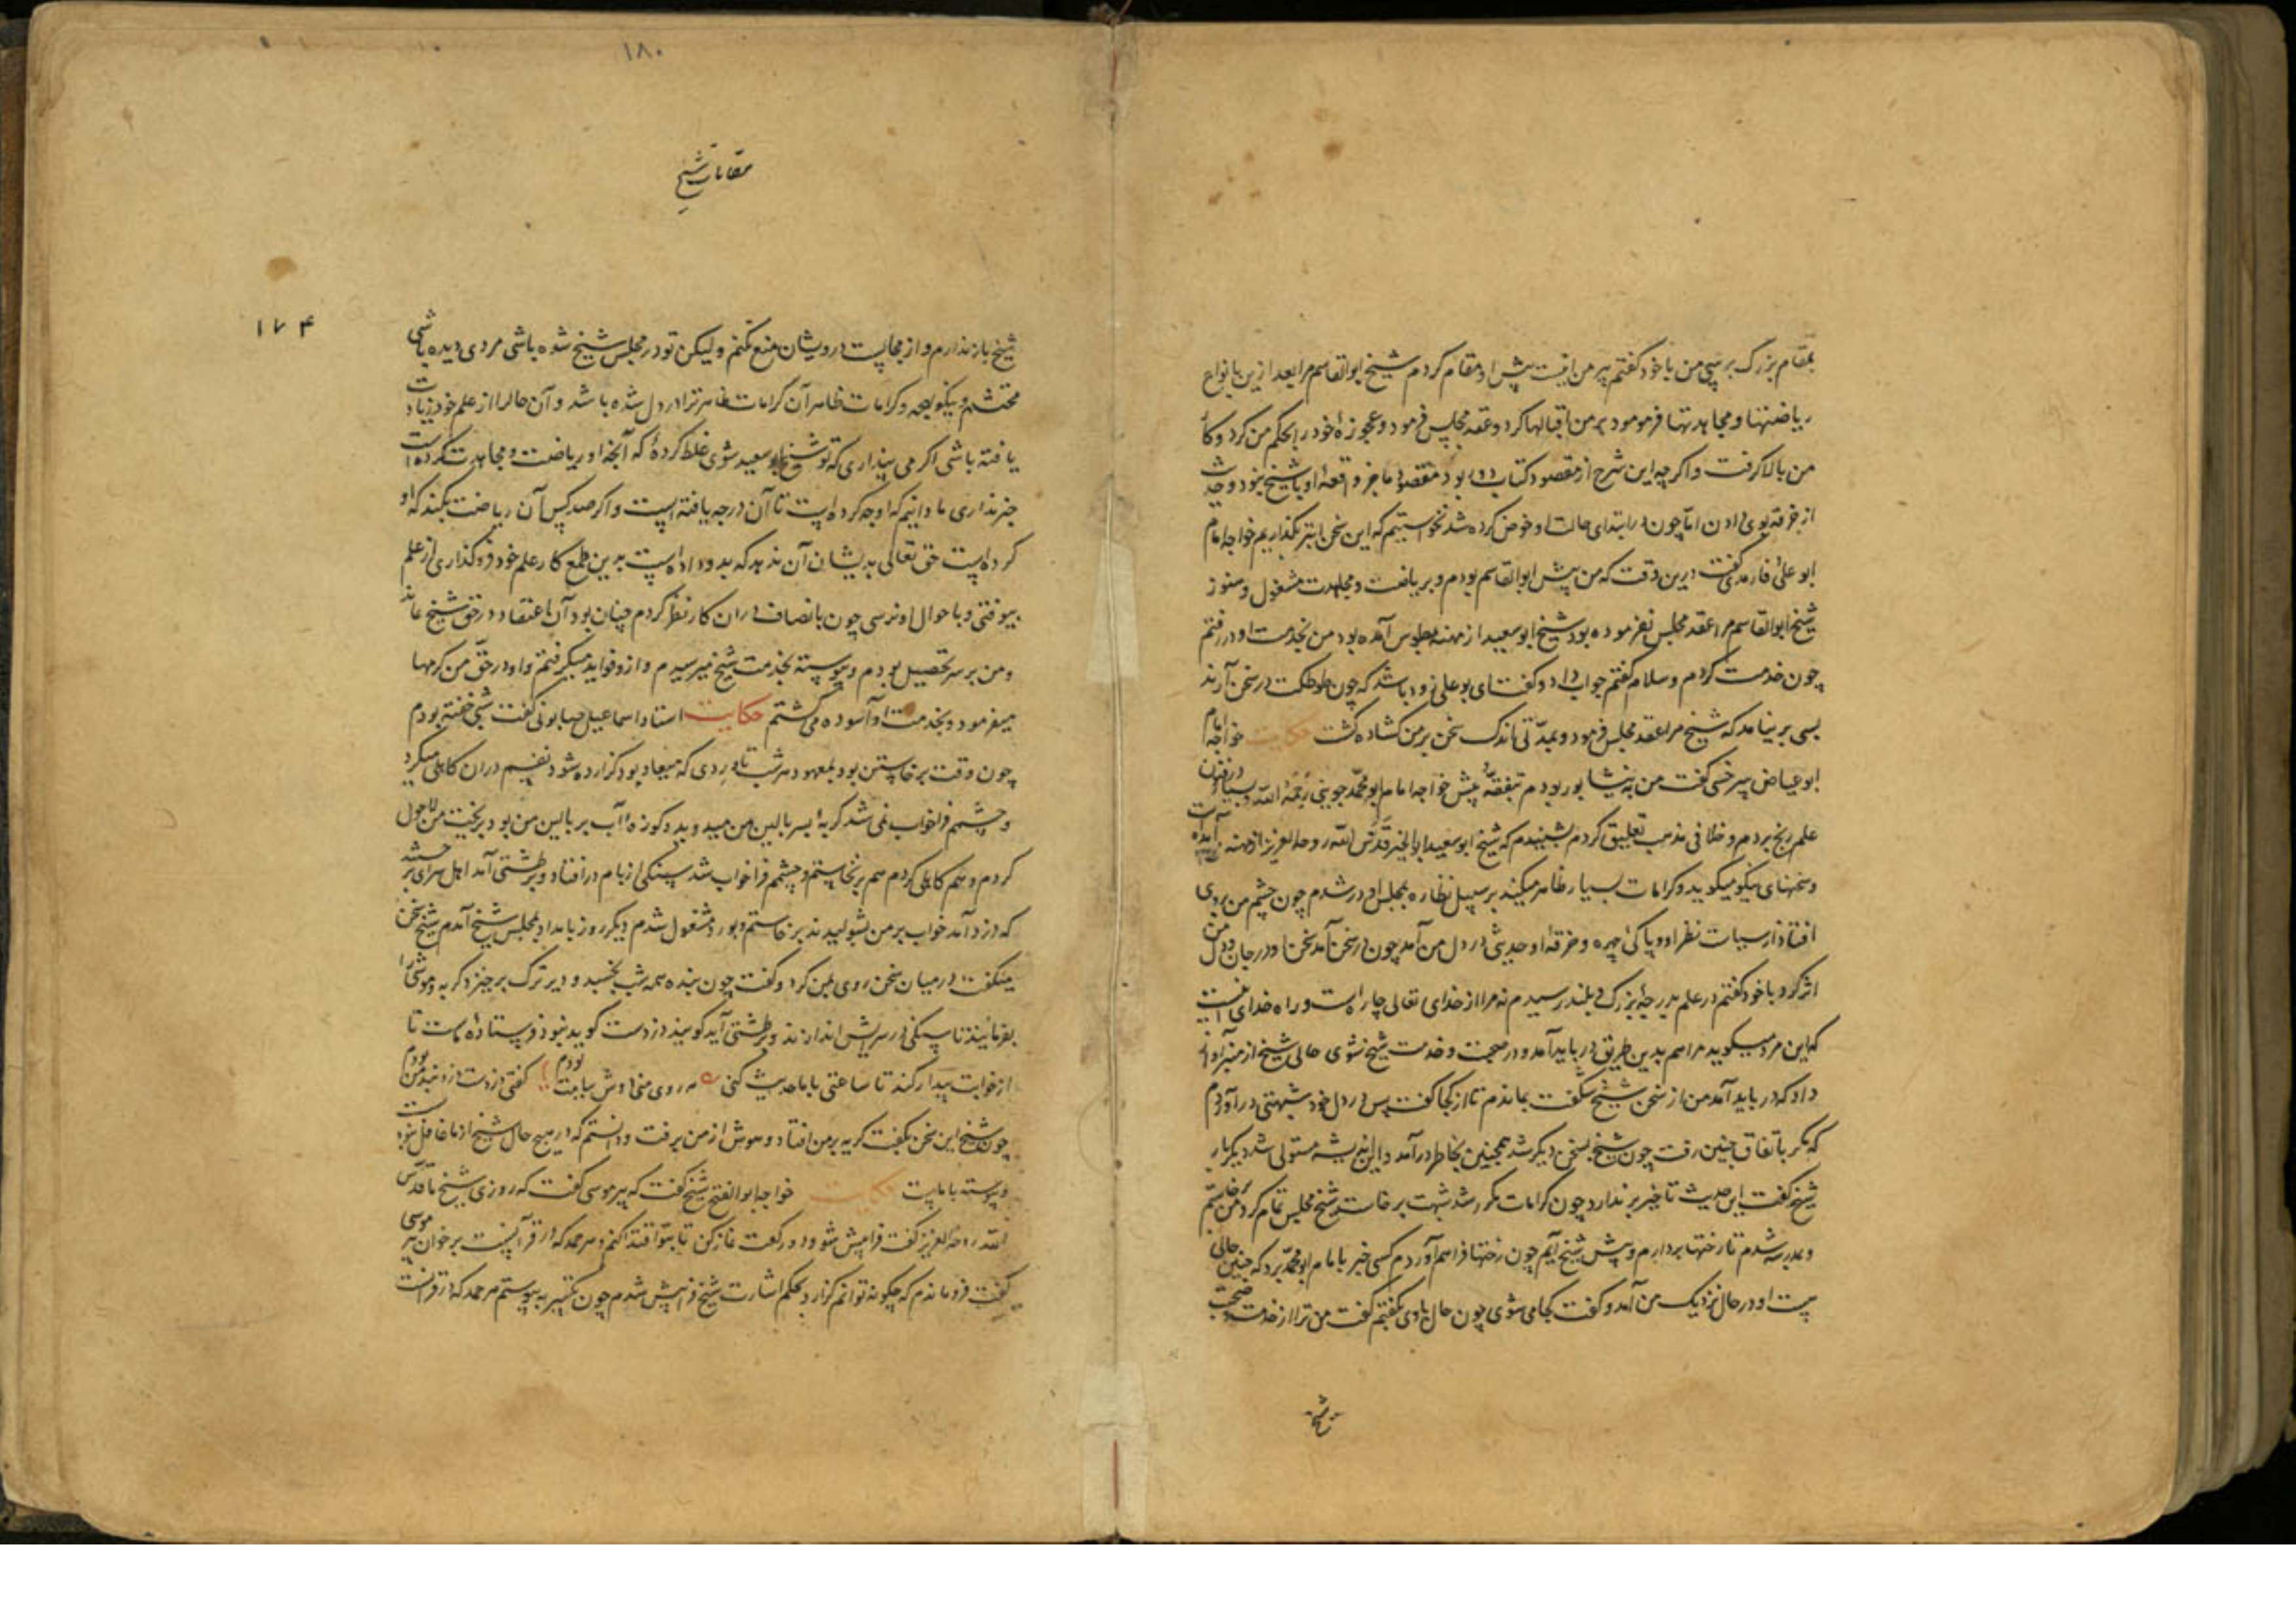 بمقام بزرک برسی من با خود کفتم پیر من اینست پیش او مقام کردم شیخ ابوالقاسم مرا بعد ازین بانواع
ریاضتها و مجاهدتها فرمود و بر من اقبالها کرد و عقد مجلس فرمود و عجوزهٔ خود را بحکم من کرد و کار
من بالا کرفت و اکرچه این شرح از مقصود کتاب دور بود مقصود ما جز واقعهٔ او با شیخ نبود و حدیث
از خرقه بوی دادن اما چون در ابتدای حالت او خوض کرده شد نخواستیم که این سخن ابتر بکذاریم خواجه امام
ابو علی فارمدی کفت درین وقت که من پیش ابوالقاسم بودم و بریاضت و مجاهدت مشغول و هنوز
شیخ ابوالقاسم مرا عقد مجلس نفرموده بود شیخ ابو سعید از مهنه بطوس آمده بود من بخدمت او در رفتم
چون خدمت کردم و سلام کفتم جواب داد و کفت ای بو علی زود باشد که چون طوطکت در سخن آرند
بسی برنیامد که شیخ مرا عقد مجلس فرمود و بمدتی اندک سخن بر من کشاده کشت حکایت خواجه امام
ابو عیاض سرخسی کفت من به نیشابور بودم بتفقه پیش خواجه امام ابو محمد جوینی رحمه الله و بسیار در فن
علم رنج بردم و خلافی مذهب تعلیق کردم بشنیدم که شیخ ابو سعید ابوالخیر قدس الله روحه العزیز از مهنه آمده است
و سخنهای نیکو میکوید و کرامات بسیار ظاهر میکند بر سبیل نظاره بمجلس او در شدم چون چشم من بروی
افتاد از سیاست نظر او و پاکی چهره و خرقهٔ او حدیثی در دل من آمد چون در سخن آمد سخن او در جان و دل من
اثر کرد با خود کفتم در علم بدرجهٔ بزرک و بلند رسیدم نه مرا از خدای تعالی چاره است و راه خدای اینست
که این مرد میکوید مرا هم بدین طریق در باید آمد و در صحبت و خدمت شیخ شوی حالی شیخ از منبر آواز
داد که در باید آمد من از سخن شیخ شکفت بماندم تا از کجا کفت پس در دل خود شبهتی درآوردم
که مکر باتفاق چنین رفت چون شیخ بسخن دیکر شد همچنین بخاطر درآمد و این اندیشه مستولی شد دیکر بار
شیخ کفت این حدیث تاخیر برندارد چون کرامات مکرر شد شبهت برخاست شیخ مجلس تمام کرد من برخاستم
و بمدرسه شدم تا رختها بردارم و پیش شیخ آیم چون رختها فراهم آوردم کسی خبر بامام ابو محمد برد که چنین حالی
هست او در حال نزدیک من آمد و کفت کجا می شوی چون حال با وی بکفتم کفت من ترا از خدمت و صحبت
شیخ
۱۸۰
مقامات شیخ
۱۷۴
شیخ باز ندارم و از مجالست درویشان منع نکنم ولیکن تو در مجلس شیخ شده باشی مردی دیده باشی
محتشم و نیکو لهجه و کرامات ظاهر آن کرامات ظاهر ترا در دل شده باشد و آن حال را از علم خود زیادت
یافته باشی اکر می پنداری که تو شیخ ابو سعید شوی غلط کردهٔ که آنچه او ریاضت و مجاهدت کرده است
خبر نداری ما دانیم که او چه کرده است تا آن درجه یافته است و اکر صد کس آن ریاضت بکند که او
کرده است حق تعالی بدیشان آن ندهد که بدو داده است بدین طمع کار علم خود فروکذاری از علم
بیوفتی و باحوال او نرسی چون بانصاف دران کار نظر کردم چنان بود آن اعتقاد در حق شیخ بماند
و من بر سر تحصیل بودم و پیوسته بخدمت شیخ میرسیدم و ازو فواید میکرفتم و او در حق من کرمها
میفرمود و بخدمت او آسوده می کشتم حکایت استاد اسماعیل صابونی کفت شبی خفته بودم
چون وقت برخاستن بود بمعهود هر شب تا وردی که میعاد بود کزارده شود نفسم دران کاهلی میکرد
و چشمم فراخواب می شد کربهٔ بسر بالین من میدوید و کوزهٔ آب بر بالین من بود بریخت من لاحول
کردم و هم کاهلی کردم هم برنخاستم و چشمم فراخواب شد سنکی از بام درافتاد و بر طشتی آمد اهل سرای برجستند
که دزد آمد خواب بر من بشولیدند برخاستم و بورد مشغول شدم دیکر روز بامداد بمجلس شیخ آمدم شیخ سخن
میکفت در میان سخن روی بمن کرد و کفت چون بنده همه شب بخسبد و دیر ترک برخیزد کربه و موشی را
بفرمایند تا سنکی در سرایش اندازند و بر طشتی آید کویند دزدست کوید نبود فرستاده ماست تا
از خوابت بیدار کند تا ساعتی با ما حدیث کنی
چون شیخ این سخن بکفت کریه بر من افتاد و هوش از من برفت و دانستم که در هیچ حال شیخ از ما غافل نبود
و پیوسته با ماست حکایت خواجه ابوالفتح شیخ کفت که پیر موسی کفت که روزی شیخ ما قدس
الله روحه العزیز کفت فراپیش شو و دو رکعت نماز کن تا بتو اقتدا کنم و هر حمد که در قرآنست برخوان پیر موسی
کفت فروماندم که چکونه توانم کزارد بحکم اشارت شیخ فراپیش شدم چون تکبیر پیوستم هر حمد که در قرانست